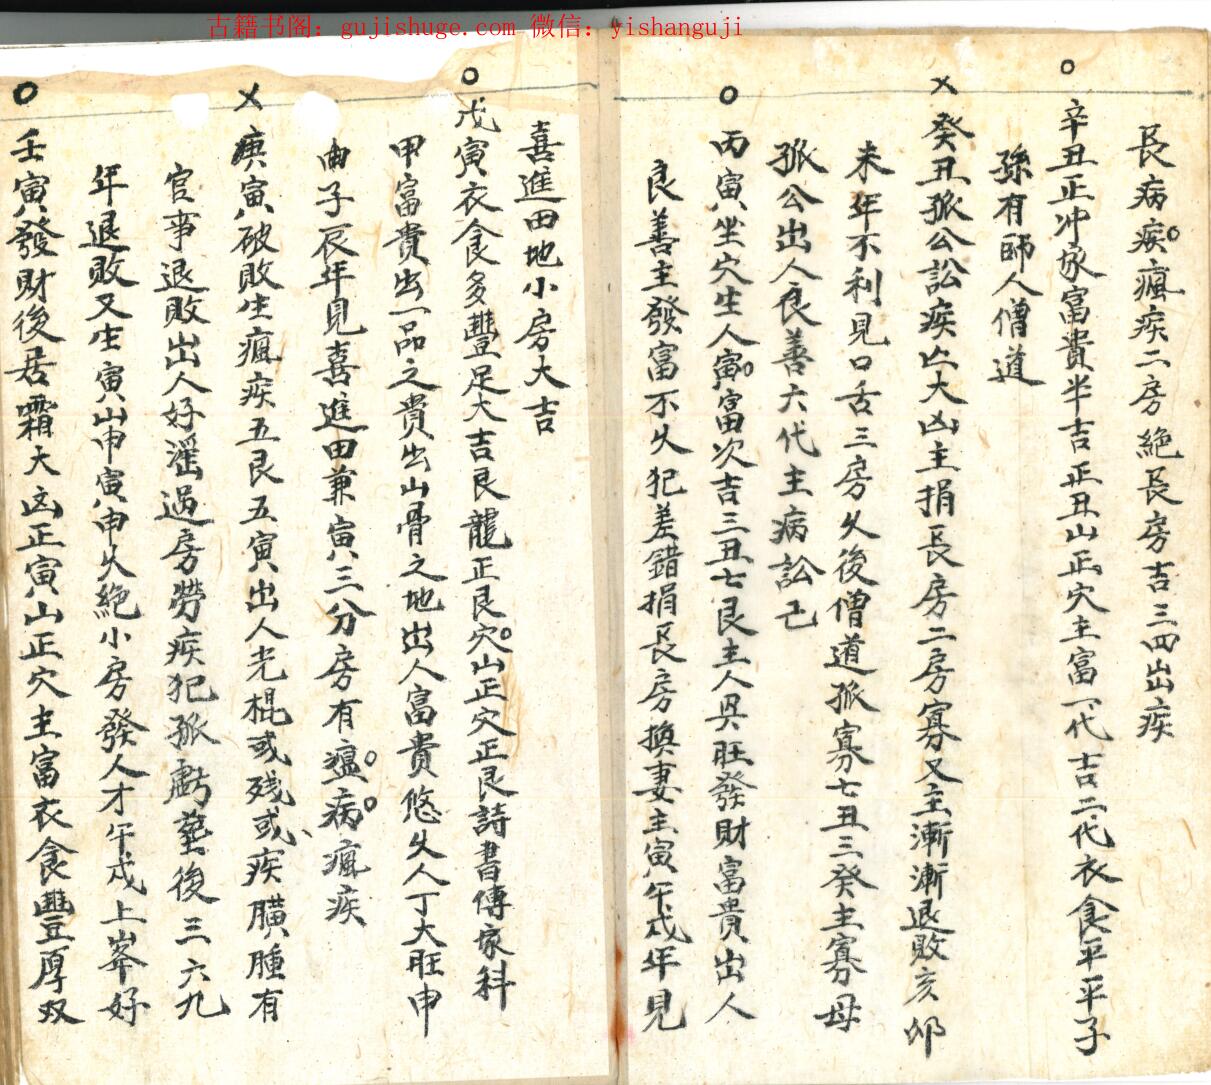 古籍书阁：gujishuge.com 微信：yishanguji
長病疾瘋疾二房絕長房吉三四出疾
辛丑正冲家富貴半吉正丑山正穴主富一代吉二代衣食平平子
孫有師人僧道
癸丑孤公訟疾亡大凶主捐長房二房寡又主漸漸退敗亥卯
未年不利見口舌三房久後僧道孤寡七丑三癸主寡母
孤公出人良善六代主病訟己
丙寅坐穴生人寅富次吉三丑七艮主人興旺發財富貴出人
良善主發富不久犯差錯捐長房換妻主寅午戌年見
喜進田地小房大吉
戊寅衣食多豐足大吉艮龍正艮穴山正穴正艮詩書傳家科
甲富貴出一品之貴出山骨之地出人富貴悠久人丁大旺申
由子辰年見喜進田兼寅三分房有瘟病瘋疾
庚寅破敗生瘋疾五艮五寅出人光棍或残或疾膹腫有
官事退敗出人好滛過房勞疾犯孤虧塟後三六九
年退敗又生寅山申寅申久絕小房發人才午戌上峯好
壬寅發財後居霜大凶正寅山正穴主富衣食豐厚双